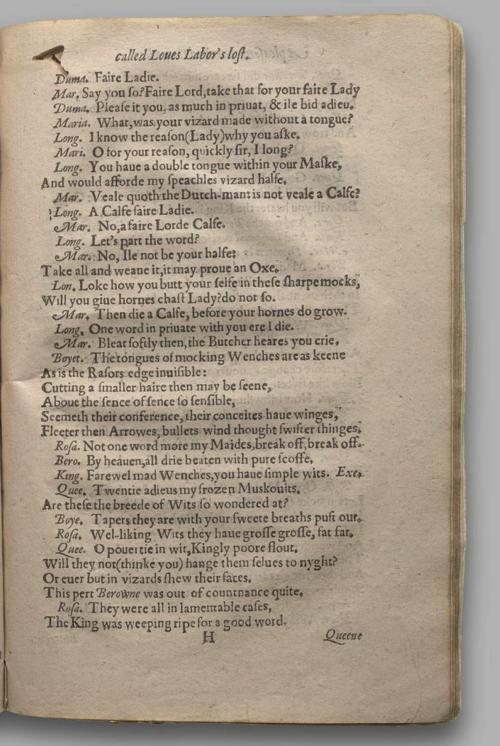 called Loues Labor's lost.
Duma. Faire Ladie.
Mar. Say you so? Faire Lord, take that for your faire Lady
Duma. Please it you, as much in priuat, & ile bid adieu.
Maria. What, was your vizard made without a tongue?
Long. I know the reason (Lady) why you aske.
Mari. O for your reason, quickly sir, I long?
Long. You haue a double tongue within your Maske,
And would afforde my speachles vizard halfe.
Mar. Veale quoth the Dutch-man: is not veale a Calfe?
Long. A Calfe faire Ladie.
Mar. No, a faire Lorde Calfe.
Long. Let's part the word?
Mar. No, Ile not be your halfe:
Take all and weane it, it may proue an Oxe.
Lon. Loke how you butt your selfe in these sharpe mocks,
Will you giue hornes chast Lady? do not so.
Mar. Then die a Calfe, before your hornes do grow.
Long. One word in priuate with you ere I die.
Mar. Bleat softly then, the Butcher heares you crie.
Boyet. The tongues of mocking Wenches are as keene
As is the Rasors edge inuisible:
Cutting a smaller haire then may be seene,
Aboue the sence of sence so sensible,
Seemeth their conference, their conceites haue winges,
Fleeter then Arrowes, bullets wind thought swifter thinges,
Rosa. Not one word more my Maides, break off, break off.
Bero. By heauen, all drie beaten with pure scoffe.
King. Farewel mad Wenches, you haue simple wits. Exe.
Quee. Twentie adieus my frozen Muskouits.
Are these the breede of Wits so wondered at?
Boye. Tapers they are with your sweete breaths puft out.
Rosa. Wel-liking Wits they haue grosse grosse, fat fat.
Quee. O pouertie in wit, Kingly poore flout.
Will they not (thinke you) hange them selues to nyght?
Or euer but in vizards shew their faces,
This pert Berowne was out of countnance quite.
Rosa. They were all in lamentable cases,
The King was weeping ripe for a good word.
H Queene